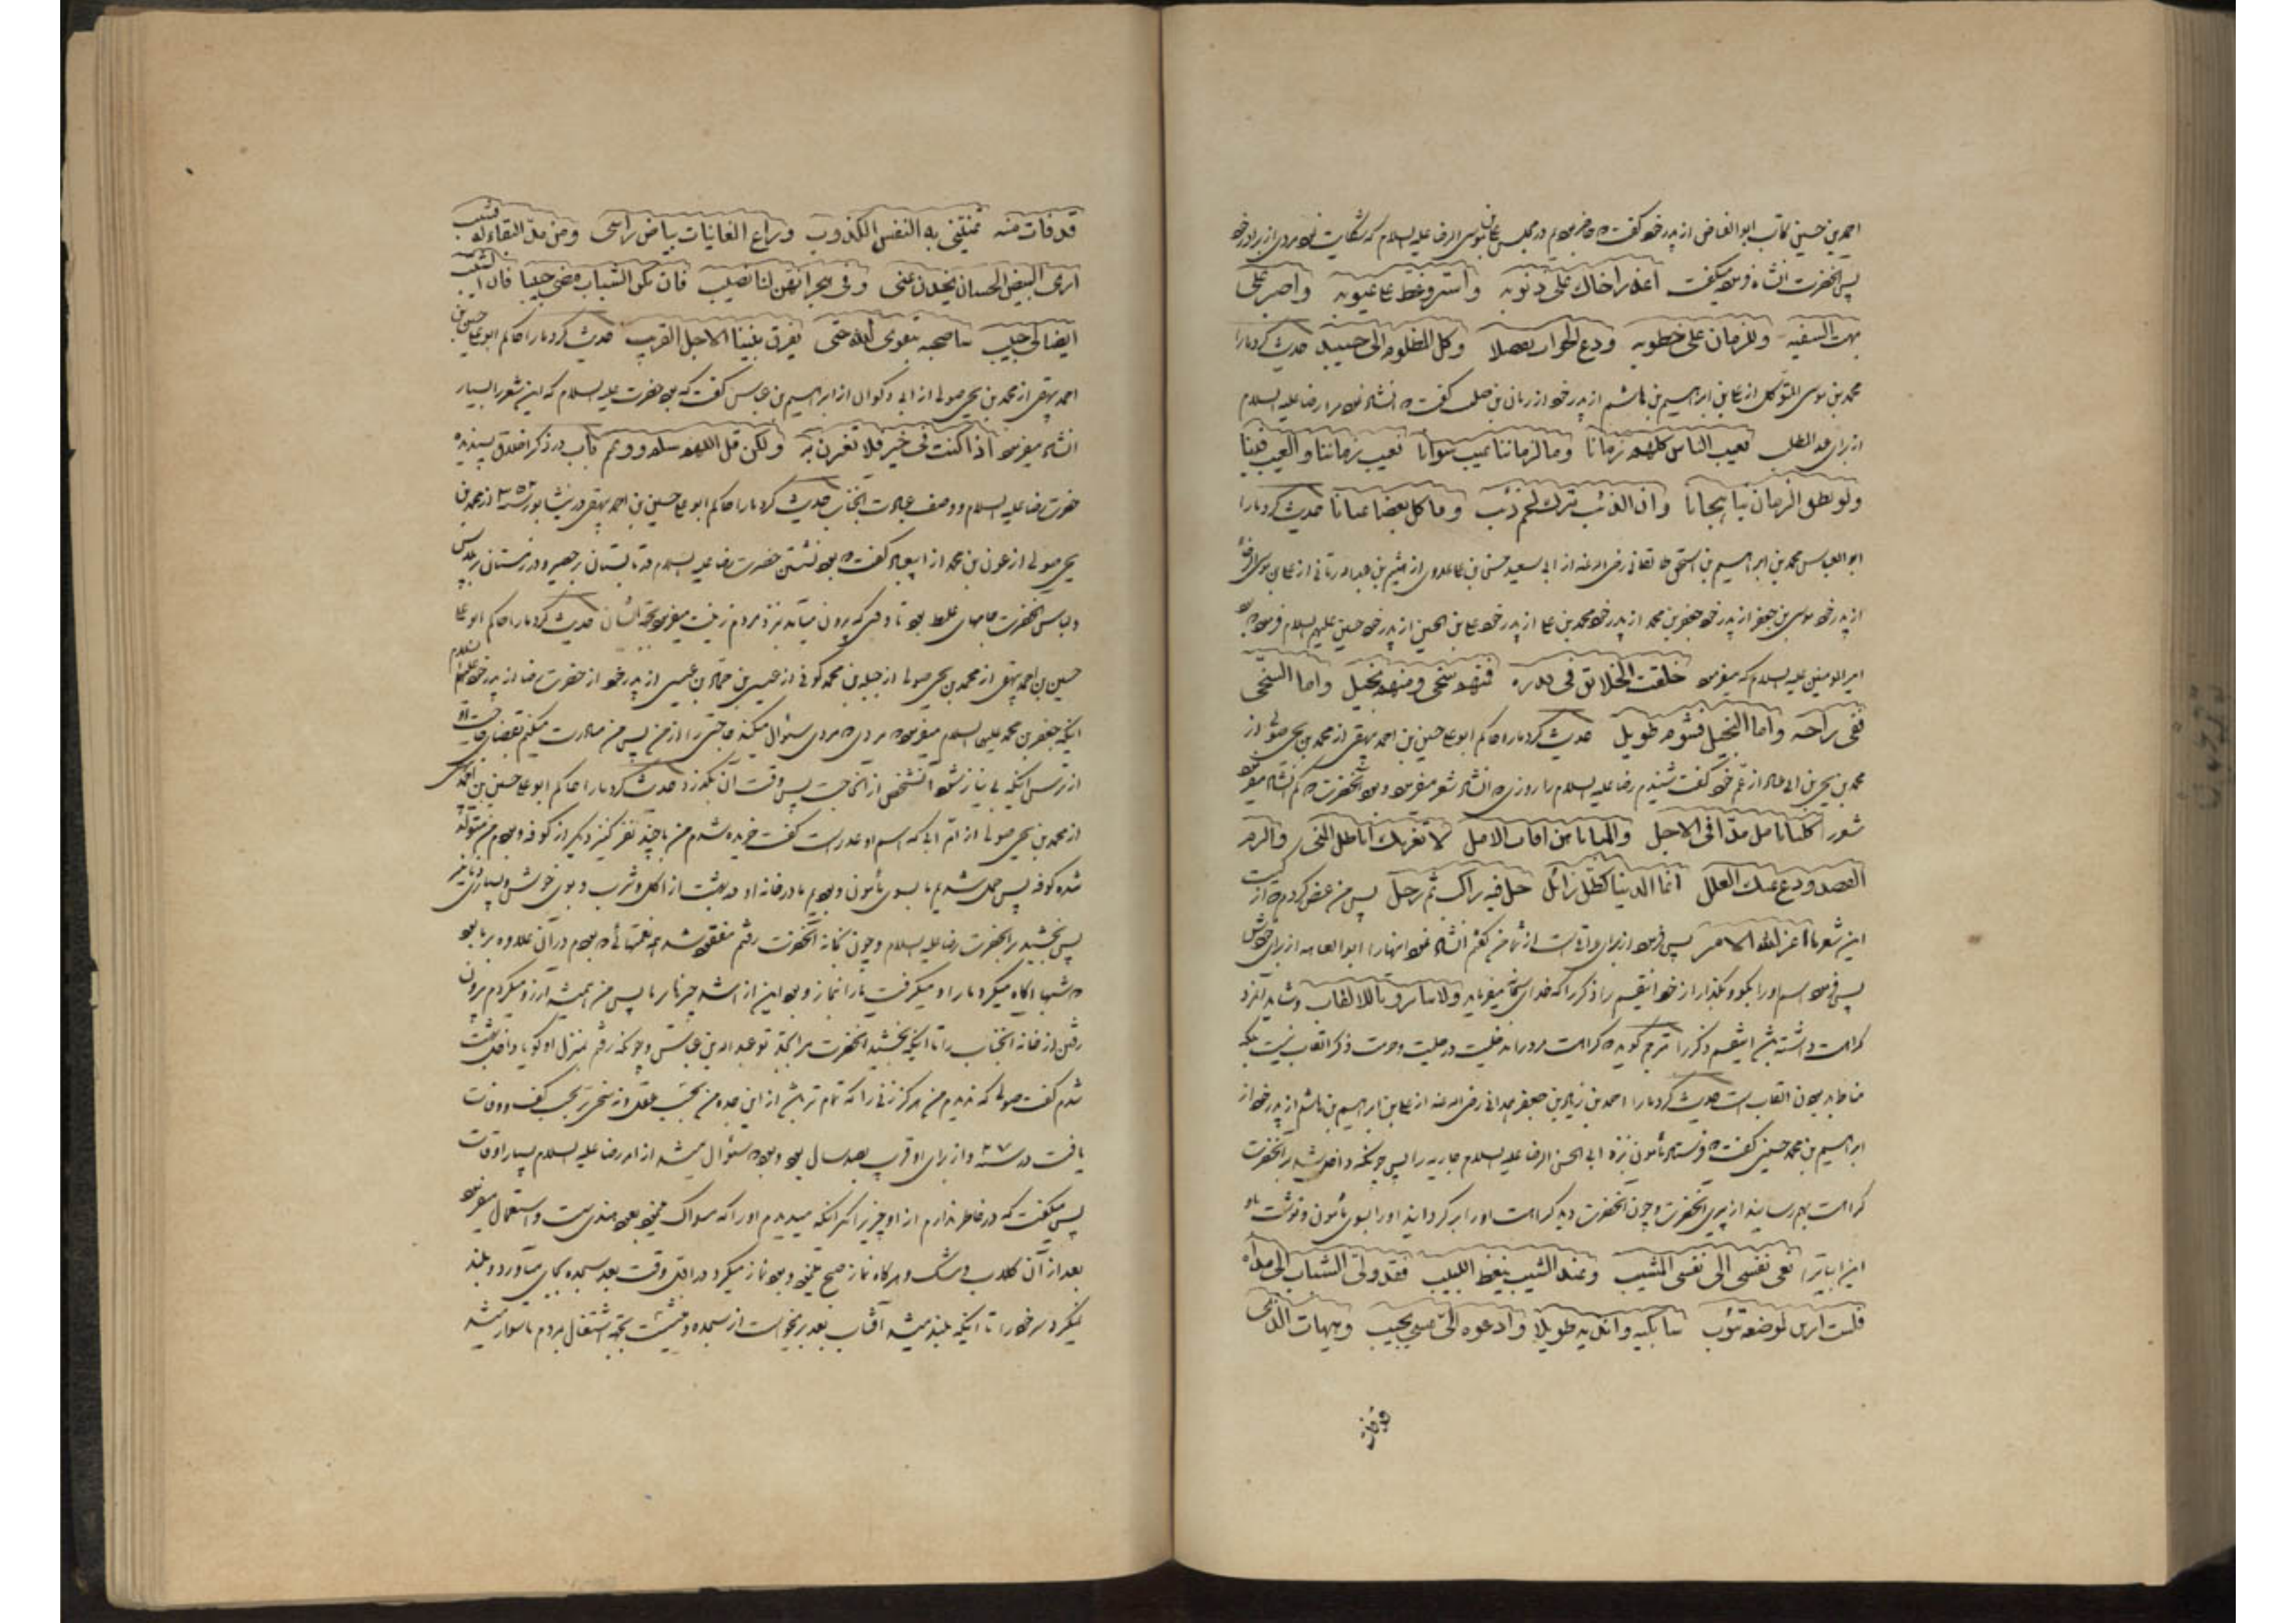 احمد بن حسین کاتب ابوالفاض از پدر خود گفت که حاضر بودم در مجلس علی بن موسی الرضا علیه السلام که شکایت نمود مردی از برادر خود
پس آنحضرت انشاد فرمود میگفت اعذر اخاک علی ذنوبه واستر وغط علی عیوبه واصبر علی
بهت السفیه وللزمان علی خطوبه ودع الجواب تفضلا وکل الظلوم الی حسیبه حدیث کرد ما را
محمد بن موسی المتوکل از علی بن ابراهیم بن هاشم از پدر خود از ریان بن صلت گفت که انشاد نمود مرا رضا علیه السلام
از برای عبد المطلب یعیب الناس کلهم زمانا وما لزماننا عیب سوانا نعیب زماننا والعیب فینا
ولو نطق الزمان بنا هجانا وان الذئب یترک لحم ذئب ویاکل بعضنا بعضا عیانا حدیث کرد ما را
ابو العباس محمد بن ابراهیم بن اسحق طالقانی رضی الله عنه از ابی سعید حسن بن علی عدوی از هیثم بن عبدالله رمانی از علی بن موسی الرضا
از پدر خود موسی بن جعفر از پدر خود جعفر بن محمد از پدر خود محمد بن علی از پدر خود علی بن الحسین از پدر خود حسین علیهم السلام فرمود که بود
امیر المومنین علیه السلام که میفرمود خلقت الخلائق فی قدره فمنهم سخی ومنهم بخیل واما السخی
ففی راحه واما البخیل فشوم طویل حدیث کرد ما را حاکم ابو علی حسین بن احمد بیهقی از محمد بن یحیی صولی از
محمد بن یحیی بن ابی عباد از عم خود گفت شنیدم رضا علیه السلام را روزی که انشاد شعر میفرمود و بود آنحضرت که کم انشاد میفرمود
شعر را کلنا نامل مدا فی الاجل والمنایا هن افات الامل لا تغرنک اباطیل المنی والزم
القصد ودع عنک العلل انما الدنیا کظل زائل حل فیه راکب ثم رحل پس من عرض کردم که از کیست
این شعرها اعز الله الامیر پس فرمود از برای عراقیست از شما من گفتم انشاد نمود اینها را ابو العتاهیه از برای خودش
پس فرمود اسم او را بگو و بگذار از خود اینقسم را ذکر را که خدای تعالی میفرماید ولا تنابزوا بالالقاب و شاید آنمرد
کراهت داشته باشد اینقسم ذکر را مترجم گوید که کراهت مرد را مدخلیت در حلیت و حرمت ذکر القاب نیست بلکه
مناط بد بودن القاب است حدیث کرد ما را احمد بن زیاد بن جعفر همدانی رضی الله عنه از علی بن ابراهیم بن هاشم از پدر خود از
ابراهیم بن محمد حسینی گفت که فرستاد مأمون نزد ابی الحسن الرضا علیه السلام جاریه را پس چونکه داخل شد بر آنحضرت
کراهت بهم رسانید از پیری آنحضرت و چون آنحضرت دید کراهت او را برگردانید او را بسوی مأمون و نوشت باو
این ابیات را نعی نفسی الی نفسی المشیب وعند الشیب یتعظ اللبیب فقد ولی الشباب الی مداه
فلست اری لموضعه یؤب سابکیه واندبه طویلا وادعوه الی عسی یجیب وهیهات الذی
قد فات
قد فات منه تمنینی به النفس الکذوب وراع الغانیات بیاض راسی ومن مد البقاء له یشیب
اری البیض الحسان یحدن عنی وفی هجرانهن لنا نصیب فان یکن الشباب مضی حبیبا فان الشیب
ایضا لی حبیب ساصحبه بتقوی الله حتی یفرق بیننا الاجل القریب حدیث کرد ما را حاکم ابو علی حسین بن
احمد بیهقی از محمد بن یحیی صولی از ابی ذکوان از ابراهیم بن عباس گفت که بود حضرت علیه السلام که این شعر را بسیار
انشاد میفرمود اذا کنت فی خیر فلا تغترر به ولکن قل اللهم سلم وتمم باب در ذکر اخلاق پسندیده
حضرت رضا علیه السلام و وصف عبادت آنجناب حدیث کرد ما را حاکم ابو علی حسین بن احمد بیهقی در نیشابور سنه ۳۵۲ از محمد بن
یحیی صولی از عون بن محمد از ابی عباد گفت که بود نشستن حضرت رضا علیه السلام در تابستان بر حصیر و در زمستان بر پلاس
و لباس آنحضرت جامهای غلیظ بود تا وقتی که بیرون میآمد نزد مردم زینت میفرمود بجهة ایشان حدیث کرد ما را حاکم ابو علی
حسین بن احمد بیهقی از محمد بن یحیی صولی از جبله بن محمد کوفی از عیسی بن حماد بن عیسی از پدر خود از حضرت رضا از پدر خود علیهما السلام
اینکه جعفر بن محمد علیها السلام میفرمود که مردی که مردی سئوال میکند حاجتی را از من پس من مبادرت میکنم بقضای حاجت او
از ترس اینکه بی نیاز شود آنشخص از آنحاجت پس وقت آن بگذرد حدیث کرد ما را حاکم ابو علی حسین بن احمد بیهقی
از محمد بن یحیی صولی از ام ابی که اسم او عذر است گفت خریده شدم من با چند نفر کنیز دیگر از کوفه و بودم من متولد
شده کوفه پس حمل شدیم ما بسوی مأمون و بودیم ما در خانه او در بهشت از اکل و شرب و بوی خوش و بسیاری دنانیر
پس بخشید بر آنحضرت رضا علیه السلام و چون بخانه آنحضرت رفتم مفقود شد همه نعمتهائی که بودم در آن علاوه بر ما بود
که شبها آگاه میکرد ما را و میگرفت ما را بنماز و بود این از اشد چیزها بر ما پس من همیشه آرزو میکردم بیرون
رفتن از خانه آنجناب را تا اینکه بخشید آنحضرت مرا بجد تو عبد الله بن عباس و چونکه رفتم بمنزل او گویا داخل بهشت
شدم گفت صولی که ندیدم من هرگز زنی را که تمام تر باشد از این جده من بحسب عقل و نه سخی تر بحسب کف و وفات
یافت در سنه ۲۷۰ و از برای او قریب بصد سال بود و بود که سئوال میشد از امر رضا علیه السلام بسیار اوقات
پس میگفت که در خاطر ندارم از او چیزی را مگر آنکه میدیدم او را که مسواک میفرمود بعود هندیست و استعمال میفرمود
بعد از آن گلاب و مشک و هرگاه نماز صبح میفرمود نماز میکرد در اول وقت بعد سجده بجای میآورد و بلند
نمیکرد سر خود را تا اینکه بلند میشد آفتاب بعد برمیخواست از سجده و مینشست بجهة اشتغال مردم یا سوار میشد